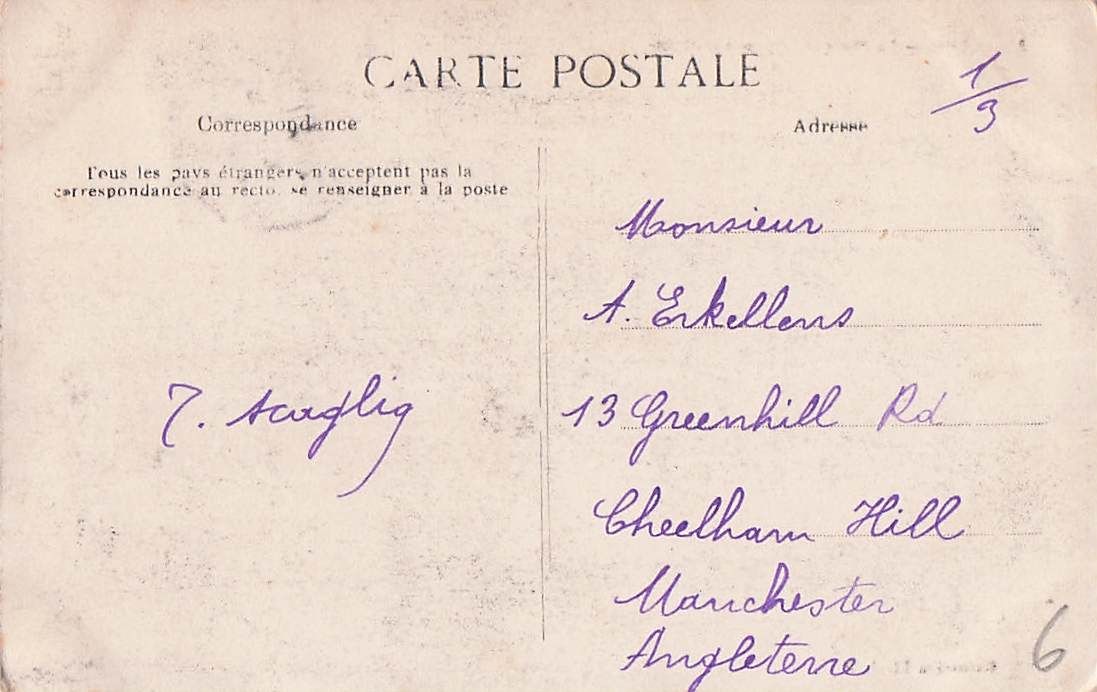 CARTE POSTALE
1/3
Correspondance
Adresse
Tous les pays étrangers n'acceptent pas la
correspondance au recto. se renseigner à la poste
Monsieur
A. Erkellens
13 Greenhill Rd
Cheelham Hill
Manchester
Angleterre
6